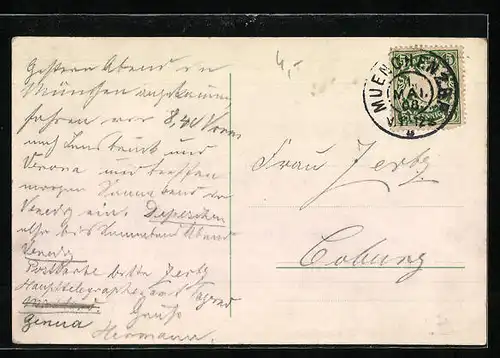 Gestern Abend in
München angekommen
fahren wir 8,40 Vorm
nach Innsbruck und
Verona und treffen
morgen Sonnabend in
Venedig ein. Depeschen
also bis Sonnabend Abend
Venedig
Postkarte
Hauptteleg
Genua Gruß
Hermann.
4,-
MUENCHEN
MAI
08
Frau Jertz
Coburg